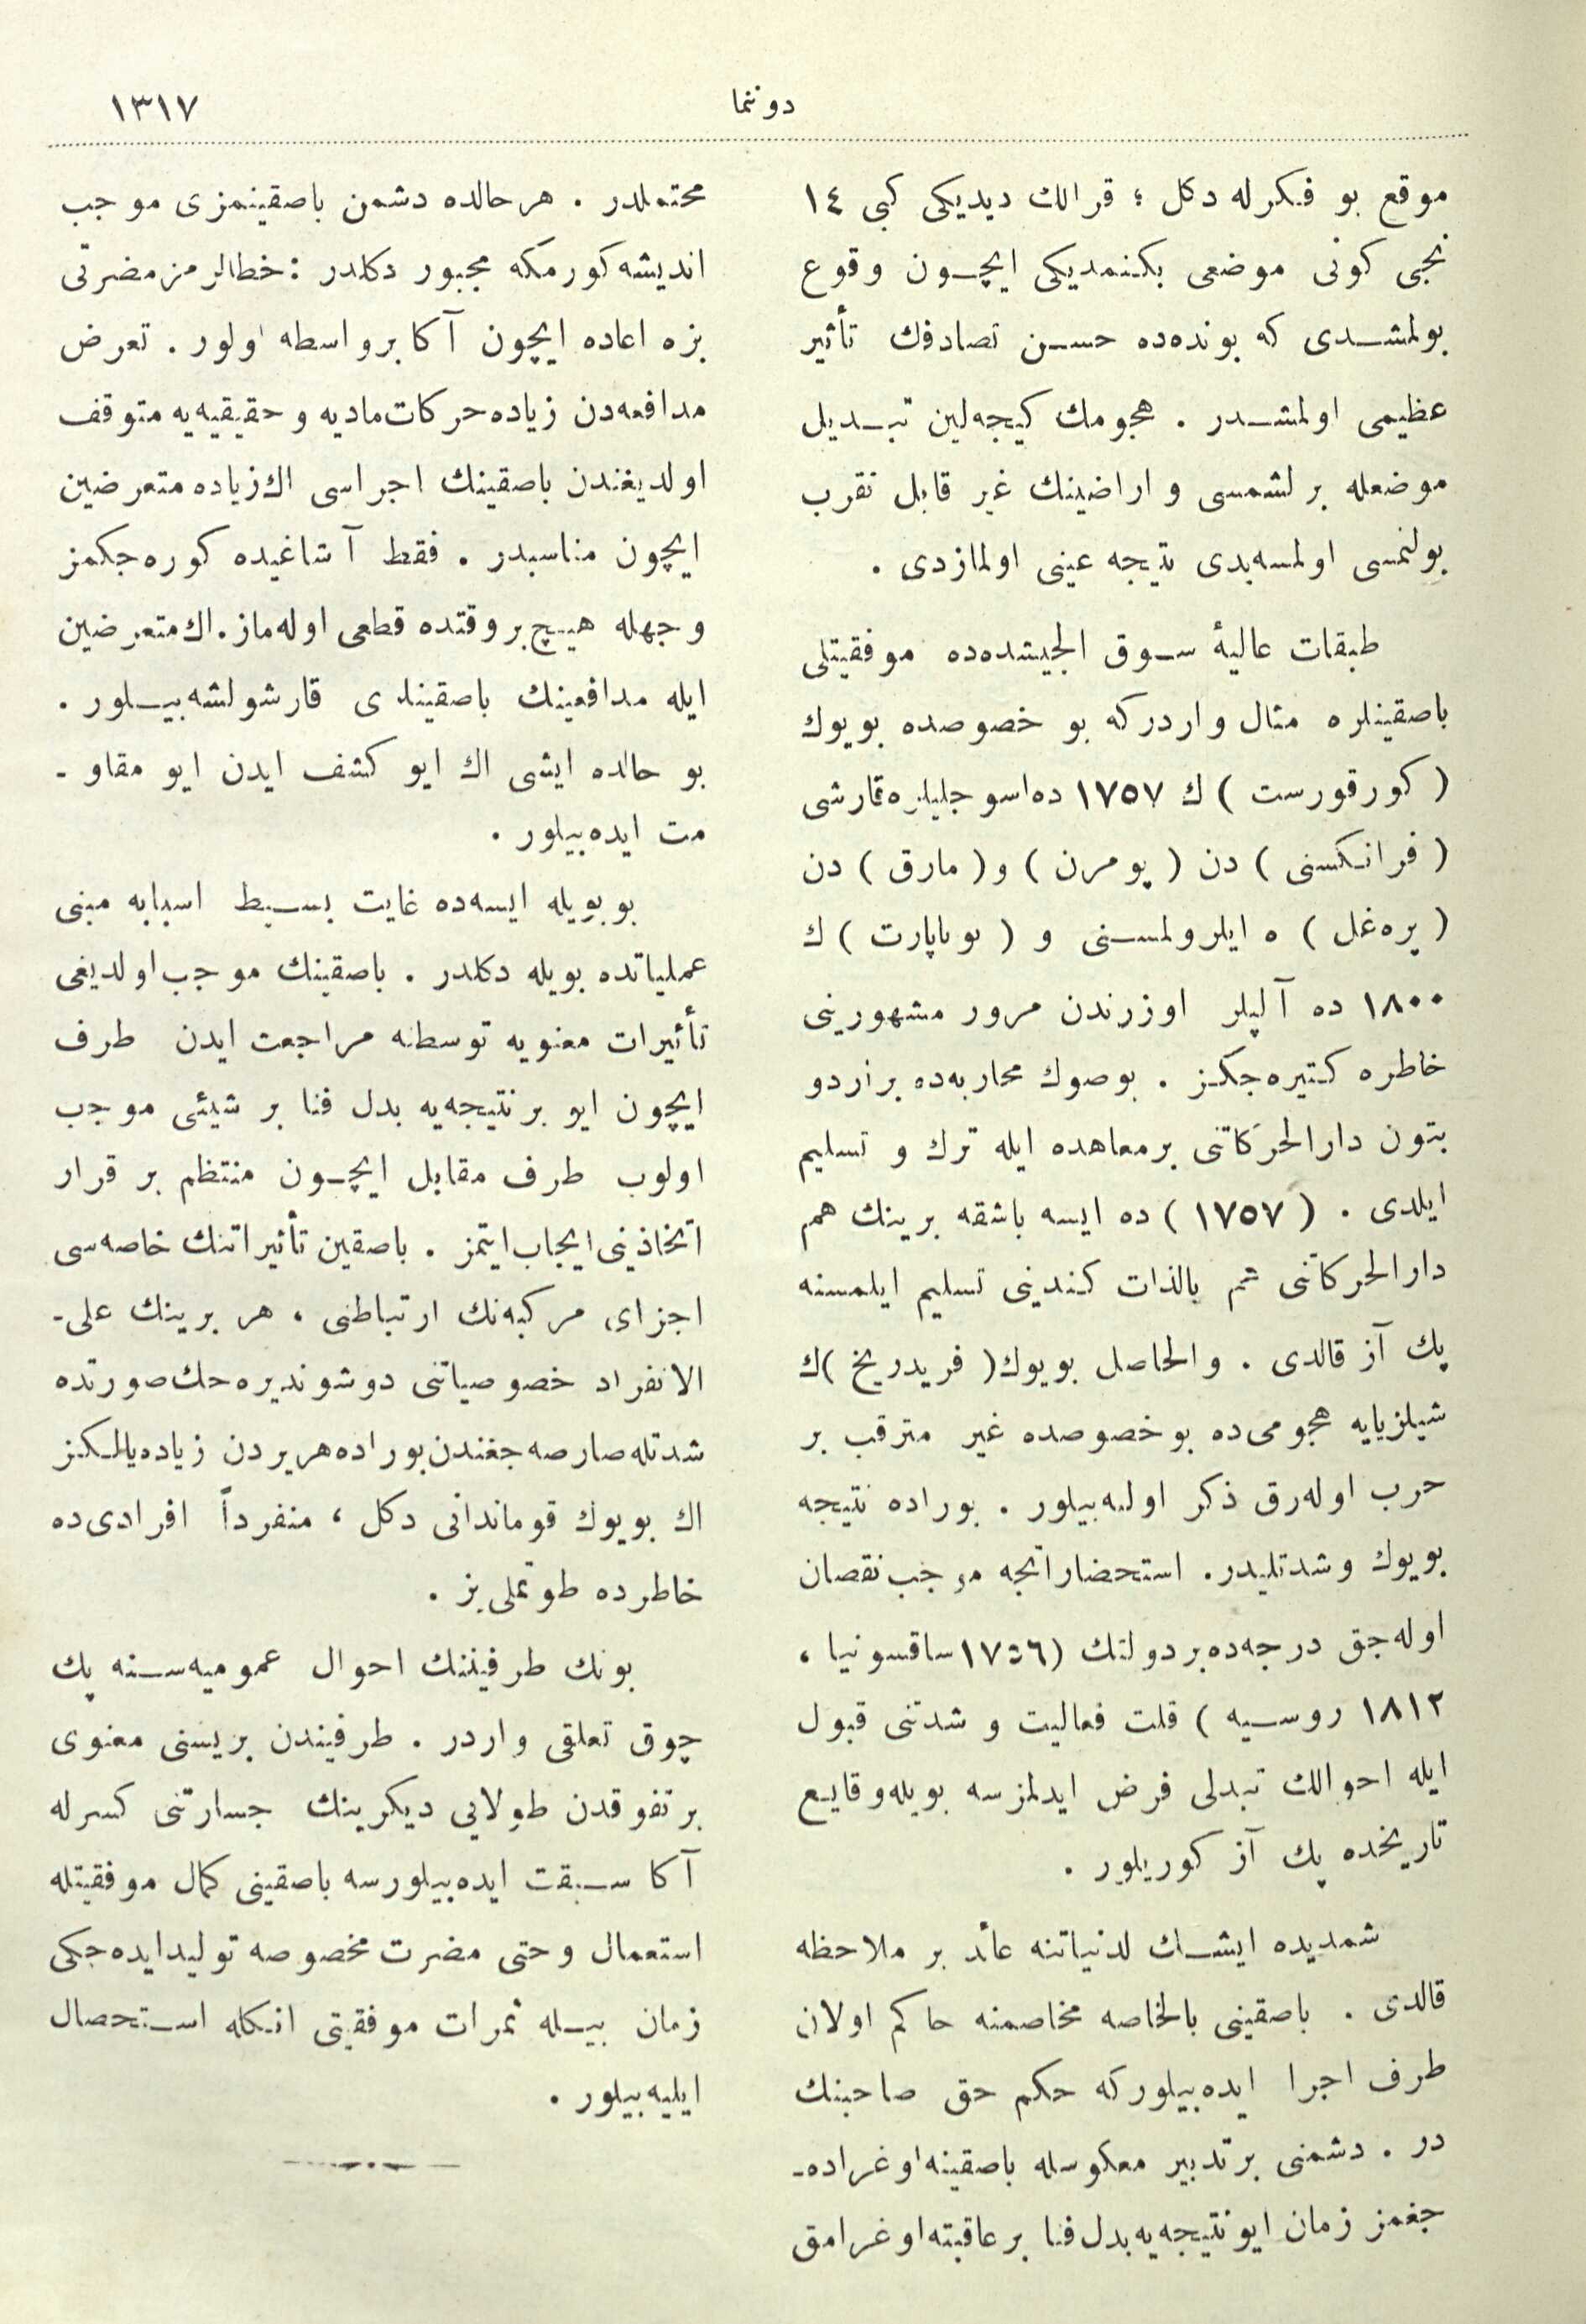 دوننما
١٣١٧
موقع بو فكرله دكل ؛ قرالك ديديكى كبى ١٤
نجى كونى موضعى بكنمديكى ايچون وقوع
بولمشدى كه بونده‌ده حسن تصادفك تأثير
عظيمى اولمشدر . هجومك كيجه‌لين تبديل
موضعله برلشمسى و اراضينك غير قابل تقرب
بولنمسى اولمسه‌يدى نتيجه عينى اولمازدى .
طبقات عاليۀ سوق الجيشده‌ده موفقيتلى
باصقينلره مثال واردركه بو خصوصده بويوك
( كورقورست ) ك ١٧٥٧ ده‌اسوجليلره‌قارشى
( فرانكسنى ) دن ( پومرن ) و( مارق ) دن
( پره‌غل ) ه ايلرولمسنى و ( بوناپارت ) ك
١٨٠٠ ده آلپلر اوزرندن مرور مشهورينى
خاطره كتيره‌جكز . بوصوك محاربه‌ده براردو
بتون دارالحركاتنى برمعاهده ايله ترك و تسليم
ايلدى . ( ١٧٥٧ ) ده ايسه باشقه برينك هم
دارالحركاتنى هم بالذات كندينى تسليم ايلمسنه
پك آز قالدى . والحاصل بويوك( فريدريخ )ك
شيلزيايه هجومى‌ده بوخصوصده غير مترقب بر
حرب اوله‌رق ذكر اولنه‌بيلور . بوراده نتيجه
بويوك وشدتليدر. استحضاراتجه موجب‌نقصان
اوله‌جق درجه‌ده‌بردولتك (١٧٥٦ساقسونيا ،
١٨١٢ روسيه ) قلت فعاليت و شدتنى قبول
ايله احوالك تبدلى فرض ايدلمزسه بويله‌وقايع
تاريخده پك آز كوريلور .
شمديده ايشك لدنياتنه عائد بر ملاحظه
قالدى . باصقينى بالخاصه مخاصمنه حاكم اولان
طرف اجرا ايده‌بيلوركه حكم حق صاحبنك
در . دشمنى برتدبير معكوسله باصقينه‌اوغراده-
جغمز زمان ايونتيجه‌يه‌بدل‌فنا برعاقبته‌اوغرامق
محتملدر . هرحالده دشمن باصقينمزى موجب
انديشه‌كورمكه مجبور دكلدر : خطالرمزمضرتى
بزه اعاده ايچون آكا برواسطه اولور . تعرض
مدافعه‌دن زياده‌حركات‌ماديه و حقيقيه‌يه متوقف
اولديغندن باصقينك اجراسى اك‌زياده متعرضين
ايچون مناسبدر . فقط آشاغيده كوره‌جكمز
وجهله هيچ‌بروقتده قطعى اوله‌ماز. اك‌متعرضين
ايله مدافعينك باصقينلرى قارشولشه‌بيلور .
بو حالده ايشى اك ايو كشف ايدن ايو مقاو -
مت ايده‌بيلور .
بوبويله ايسه‌ده غايت بسيط اسبابه مبنى
عملياتده بويله دكلدر . باصقينك موجب‌اولديغى
تأثيرات معنويه توسطنه مراجعت ايدن طرف
ايچون ايو برنتيجه‌يه بدل فنا بر شيئى موجب
اولوب طرف مقابل ايچون منتظم بر قرار
اتخاذينى‌ايجاب‌ايتمز . باصقين تأثيراتنك خاصه‌سى
اجزاى مركبه‌نك ارتباطنى ، هر برينك على-
الانفراد خصوصياتنى دوشونديره‌جك‌صورتده
شدتله‌صارصه‌جغندن‌بوراده‌هريردن زياده‌يالكز
اك بويوك قوماندانى دكل ، منفرداً افرادى‌ده
خاطرده طوتملى‌يز .
بونك طرفيننك احوال عموميه‌سنه پك
چوق تعلقى واردر . طرفيندن بريسنى معنوى
برتفوقدن طولايى ديكرينك جسارتنى كسرله
آكا سبقت ايده‌بيلورسه باصقينى كمال موفقيتله
استعمال وحتى مضرت مخصوصه توليدايده‌جكى
زمان بيله ثمرات موفقيتى انكله استحصال
ايليه‌بيلور .